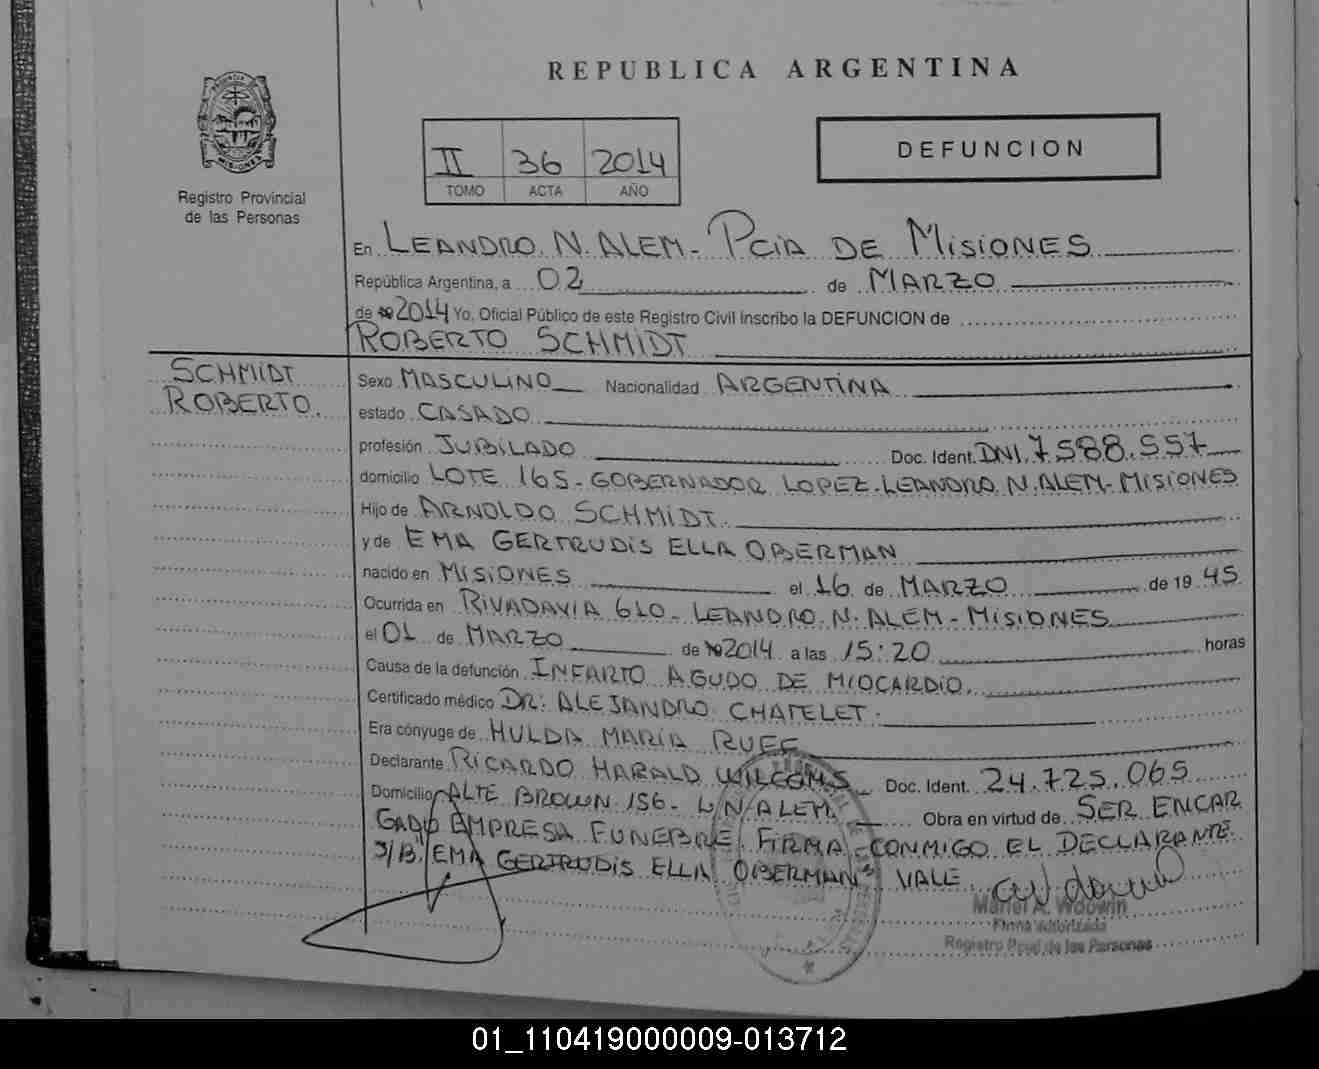 REPUBLICA ARGENTINA
Registro Provincial
de las Personas
II 36 2014
TOMO ACTA AÑO
DEFUNCION
En LEANDRO. N. ALEM- PCIA DE MISIONES
República Argentina, a 02 de MARZO
de 2014 Yo, Oficial Público de este Registro Civil inscribo la DEFUNCION de
ROBERTO SCHMIDT
SCHMIDT
ROBERTO.
Sexo MASCULINO Nacionalidad ARGENTINA
estado CASADO
profesión JUBILADO Doc. Ident. DNI. 7.588.557
domicilio LOTE 165- GOBERNADOR LOPEZ-LEANDRO. N. ALEM- MISIONES
Hijo de ARNOLDO SCHMIDT
y de EMA GERTRUDIS ELLA OBERMAN
nacido en MISIONES el 16 de MARZO de 19 45
Ocurrida en RIVADAVIA 610- LEANDRO. N. ALEM- MISIONES
el 01 de MARZO de 2014 a las 15:20 horas
Causa de la defunción INFARTO AGUDO DE MIOCARDIO.
Certificado médico DR: ALEJANDRO CHATELET.
Era cónyuge de HULDA MARIA RUFF
Declarante RICARDO HARALD Doc. Ident. 24.725.065
Domicilio ALTE BROWN 156- L/N/ALEM Obra en virtud de SER ENCAR
GADO EMPRESA FUNEBRE. FIRMA CONMIGO EL DECLARANTE.
S/B. "EMA GERTRUDIS ELLA OBERMAN" VALE
Mariel A. Wdowin
Firma autorizada
Registro Pcial. de las Personas
01_110419000009-013712